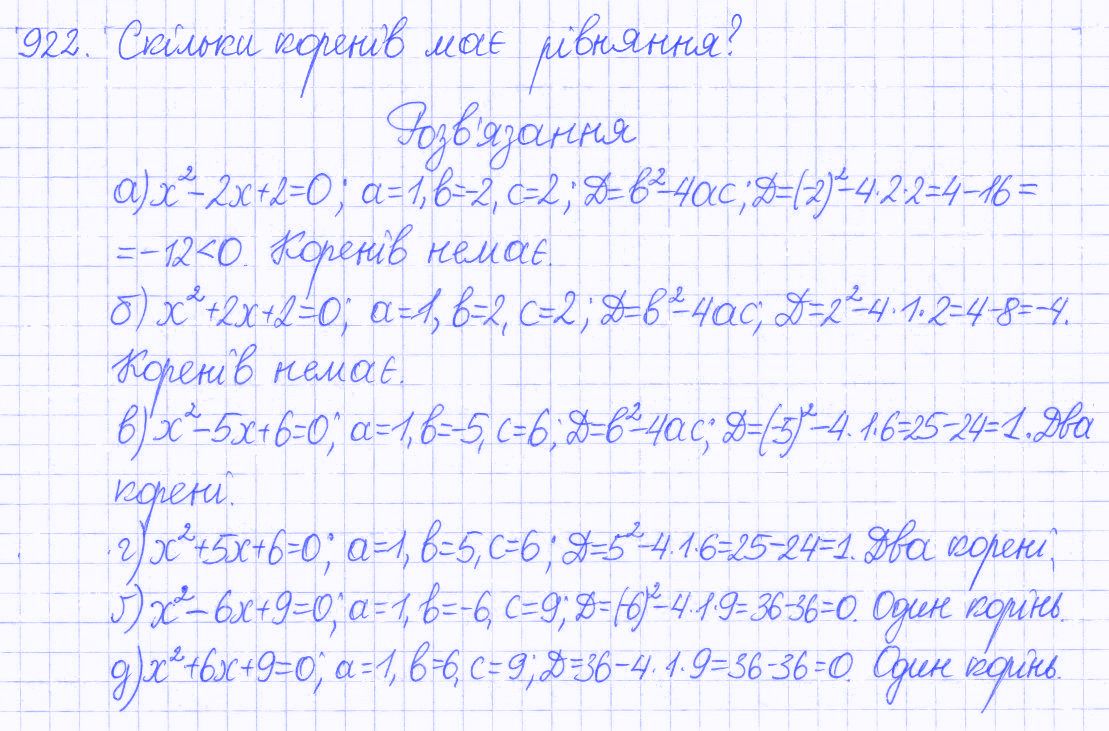 922. Скільки коренів має рівняння?
Розв'язання
а) x²-2x+2=0; a=1, b=-2, c=2; Д=b²-4ac; Д=(-2)²-4·2·2=4-16=
=-12<0. Коренів немає.
б) x²+2x+2=0; a=1, b=2, c=2; Д=b²-4ac; Д=2²-4·1·2=4-8=-4.
Коренів немає.
в) x²-5x+6=0; a=1, b=-5, c=6; Д=b²-4ac; Д=(-5)²-4·1·6=25-24=1. Два
корені.
г) x²+5x+6=0; a=1, b=5, c=6; Д=5²-4·1·6=25-24=1. Два корені;
ґ) x²-6x+9=0; a=1, b=-6, c=9; Д=(-6)²-4·1·9=36-36=0. Один корінь.
д) x²+6x+9=0; a=1, b=6, c=9; Д=36-4·1·9=36-36=0. Один корінь.